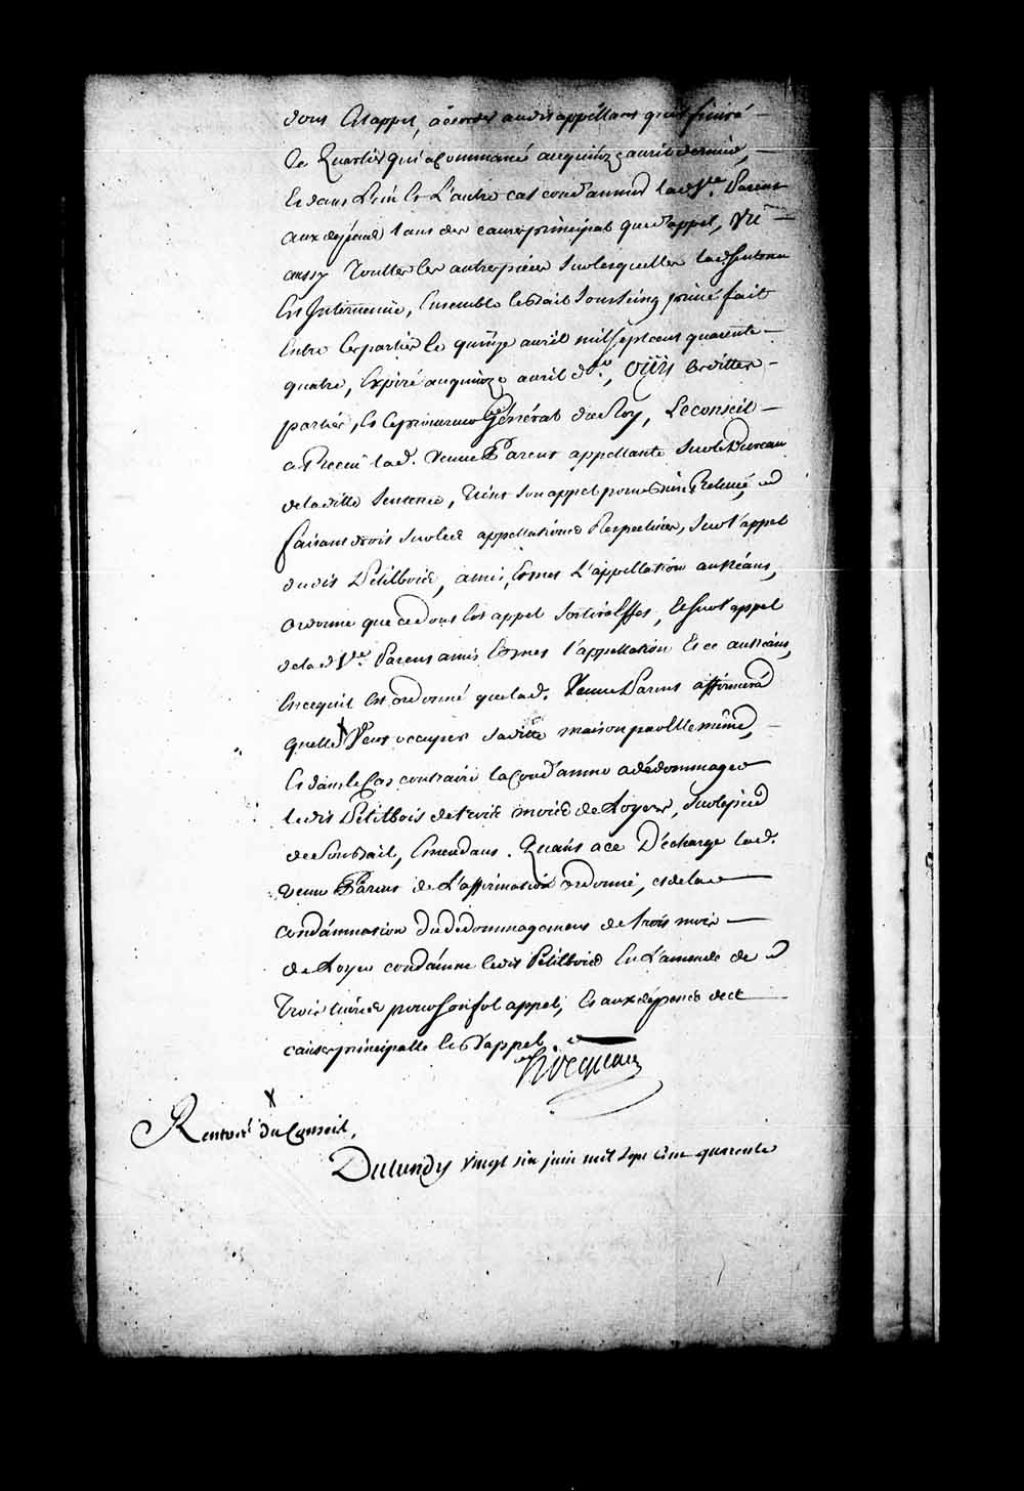 dont Est appel, accorder audit appellant qu'il finira
le Quartier qui a commancé au quinze avril dernier,
Et dans L'un Et L'autre cas condamner lad. Ve. Parent
aux depens tant des causes principal que d'appel, Vû
aussy Touttes les autres pieces sur lesquelles lad. sentence
Est Intervenüe, Ensemble le bail sous seing privé fait
Entre les parties le quinze avril mil sept cent quarente
quatre, Expiré au quinze avril de., Oüÿs lesdittes
parties, Et le procureur Général du Roy, Le conseil
a Receu lad. Veuve Parent appellante sur le Bureau
de laditte sentence, Tient son appel pour bien Relevé, et
faisant droit sur les appellations Respectives, sur l'appel
dudit Petitbois, a mis, Et met L'appellation au Neant,
ordonne que ce dont Est appel sortira Effet, Et sur l'appel
de lad. Ve. Parent a mis Et met l'appellation Et ce au Neant,
En ce qu'il Est ordonné que lad. Veuve Parent affirmera
quelle Veut occuper sadite maison par Elle même,
Et dans le Cas contraire la Condamne a dédommager
ledit Petitbois de trois mois de Loyers, sur le pied
de son bail, Emendant. Quant a ce Décharge lad.
Veuve Parent de L'affirmation ordonné, et de la
condamnation du dédommagement de trois mois
de Loyer condamne ledit Petitbois En L'amende de
Trois Livres pour son fol appel, Et aux dépens de
cause principalle Et D'appel.
Hocquart
Du Lundy vingt six juin mil sept Cent quarente